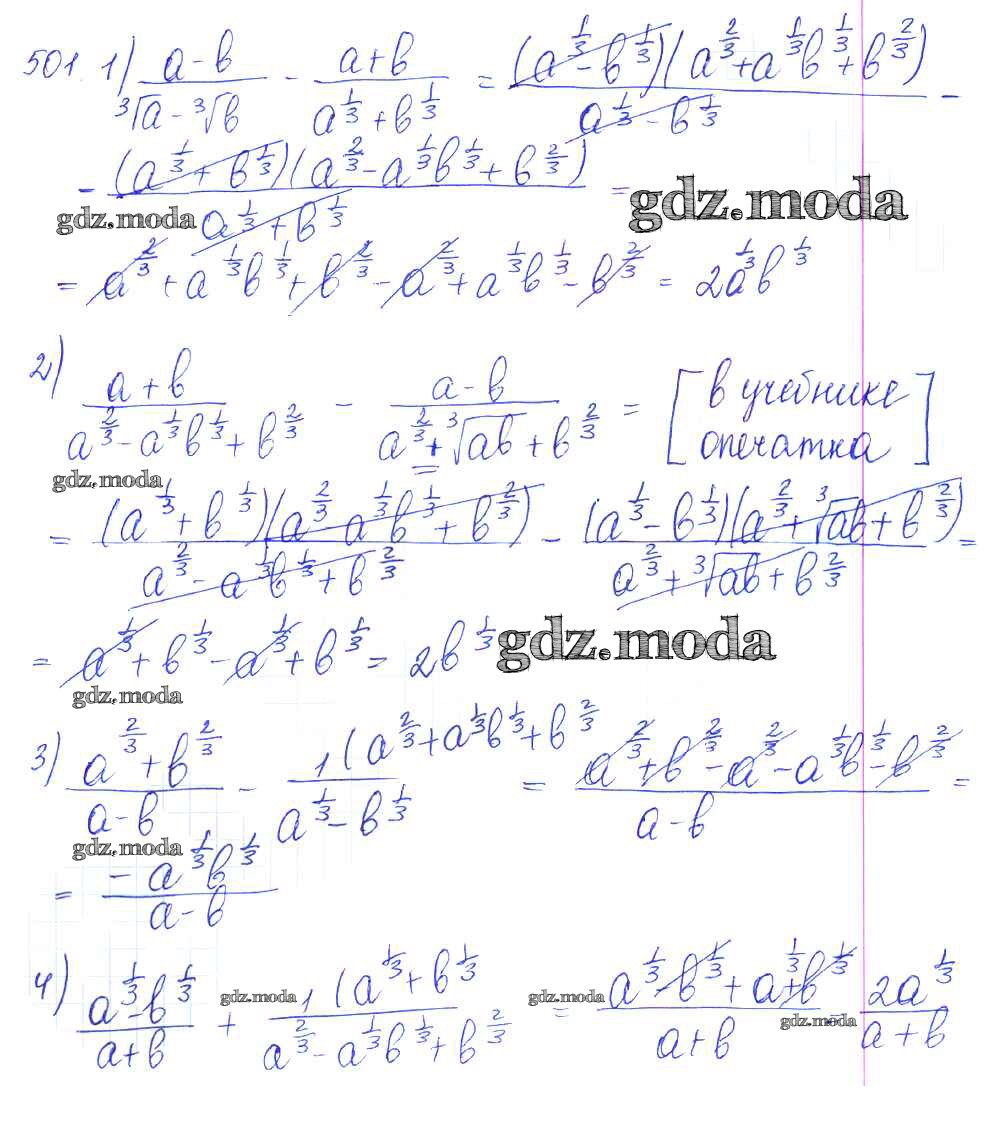 501. 1) (a-b)/(∛a - ∛b) - (a+b)/(a^{1/3} + b^{1/3}) = (a^{1/3} - b^{1/3})(a^{2/3} + a^{1/3}b^{1/3} + b^{2/3})/(a^{1/3} - b^{1/3}) -
- (a^{1/3} + b^{1/3})(a^{2/3} - a^{1/3}b^{1/3} + b^{2/3})/(a^{1/3} + b^{1/3}) = gdz.moda
gdz.moda
= a^{2/3} + a^{1/3}b^{1/3} + b^{2/3} - a^{2/3} + a^{1/3}b^{1/3} - b^{2/3} = 2a^{1/3}b^{1/3}
2) (a+b)/(a^{2/3} - a^{1/3}b^{1/3} + b^{2/3}) - (a-b)/(a^{2/3} + ∛(ab) + b^{2/3}) = [в учебнике
опечатка]
gdz.moda
= (a^{1/3} + b^{1/3})(a^{2/3} - a^{1/3}b^{1/3} + b^{2/3})/(a^{2/3} - a^{1/3}b^{1/3} + b^{2/3}) - (a^{1/3} - b^{1/3})(a^{2/3} + ∛(ab) + b^{2/3})/(a^{2/3} + ∛(ab) + b^{2/3}) =
= a^{1/3} + b^{1/3} - a^{1/3} + b^{1/3} = 2b^{1/3} gdz.moda
gdz.moda
3) (a^{2/3} + b^{2/3})/(a-b) - 1(a^{2/3} + a^{1/3}b^{1/3} + b^{2/3}/(a^{1/3} - b^{1/3}) = (a^{2/3} + b^{2/3} - a^{2/3} - a^{1/3}b^{1/3} - b^{2/3})/(a-b) =
gdz.moda
= (-a^{1/3}b^{1/3})/(a-b)
4) (a^{1/3} - b^{1/3})/(a+b) + 1(a^{1/3} + b^{1/3}/(a^{2/3} - a^{1/3}b^{1/3} + b^{2/3}) = (a^{1/3} - b^{1/3} + a^{1/3} + b^{1/3})/(a+b) = 2a^{1/3}/(a+b)
gdz.moda
gdz.moda
gdz.moda